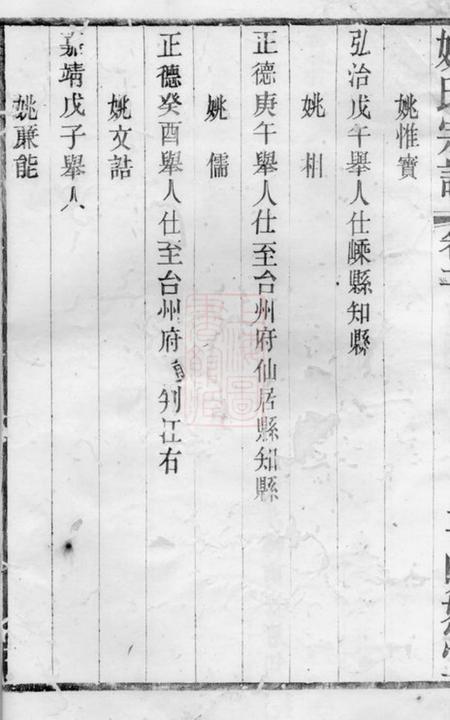 姚氏宗譜
姚惟寳
弘治戊午舉人仕嵊縣知縣
姚相
正德庚午舉人仕至台州府仙居縣知縣
姚儒
正德癸酉舉人仕至台州府通判江右
姚文誥
嘉靖戊子舉人
姚廉能